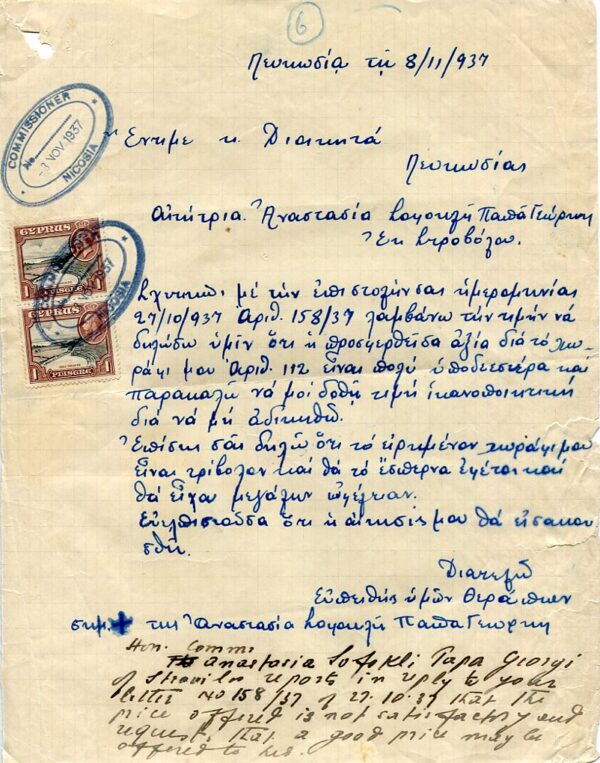 6
Λευκωσία τῇ 8/11/937
COMMISSIONER
No.
-8 NOV 1937
NICOSIA
Ἔντιμε κ. Διοικητά
Λευκωσίας
Αἰτήτρια. Ἀναστασία Σοφοκλῆ Παπᾶ Γεώρκη
Ἐκ Στροβόλου.
CYPRUS
1 1
PIASTRE
1937
NICOSIA
Σχετικῶς μὲ τὴν ἐπιστολήν σας ἡμερομηνίας
27/10/937 Ἀριθ. 158/37 λαμβάνω τὴν τιμὴν νὰ
δηλώσω ὑμῖν ὅτι ἡ προσφερθεῖσα ἀξία διὰ τὸ χω-
ράφι μου Ἀριθ. 112 εἶναι πολὺ ὑποδεεστέρα καὶ
παρακαλῶ νὰ μοὶ δοθῇ τιμὴ ἱκανοποιητικὴ
διὰ νὰ μὴ ἀδικηθῶ.
Ἐπίσης σᾶς δηλῶ ὅτι τὸ εἰρημένον χωράφι μου
εἶναι τρίβολον καὶ θὰ τὸ ἔσπερνα ἐφέτος καὶ
θὰ εἶχα μεγάλην ὠφέλειαν.
Εὐελπιστοῦσα ὅτι ἡ αἴτησίς μου θὰ εἰσακου
σθῇ.
CYPRUS
1 1
PIASTRE
Διατελῶ
Εὐπειθὴς ὑμῶν θεράπων
σημ. + της Ἀναστασία Σοφοκλῆ Παπᾶ Γεώρκη
Hon. Commr
Anastasia Sofokli Papa Giorgi
of Strovilos reports in reply to your
letter No 158/37 of 27.10.37 that the
price offered is not satisfactory and
request, that a good price may be
offered to her.